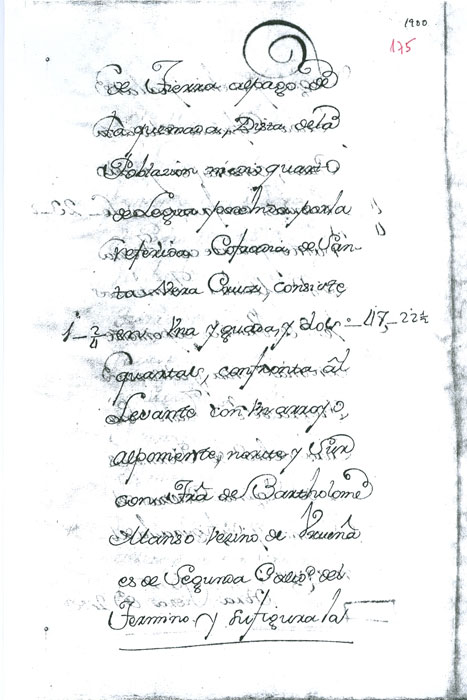 1900
175
de Tierra al pago de
la quemada, Dista de la
Poblazion medio quarto
de Legua, posehida por la
referida Cofradia de San-
ta Vera Cruz, consiste
1-2/4 en Una yguada, y dos 47,-22½
quartals, confronta al
Levante con Un arroyo,
al poniente, norte y Sur
con trâ de Bartholomé
Alonso vezino de
es de Segunda del
Termino y su figura la